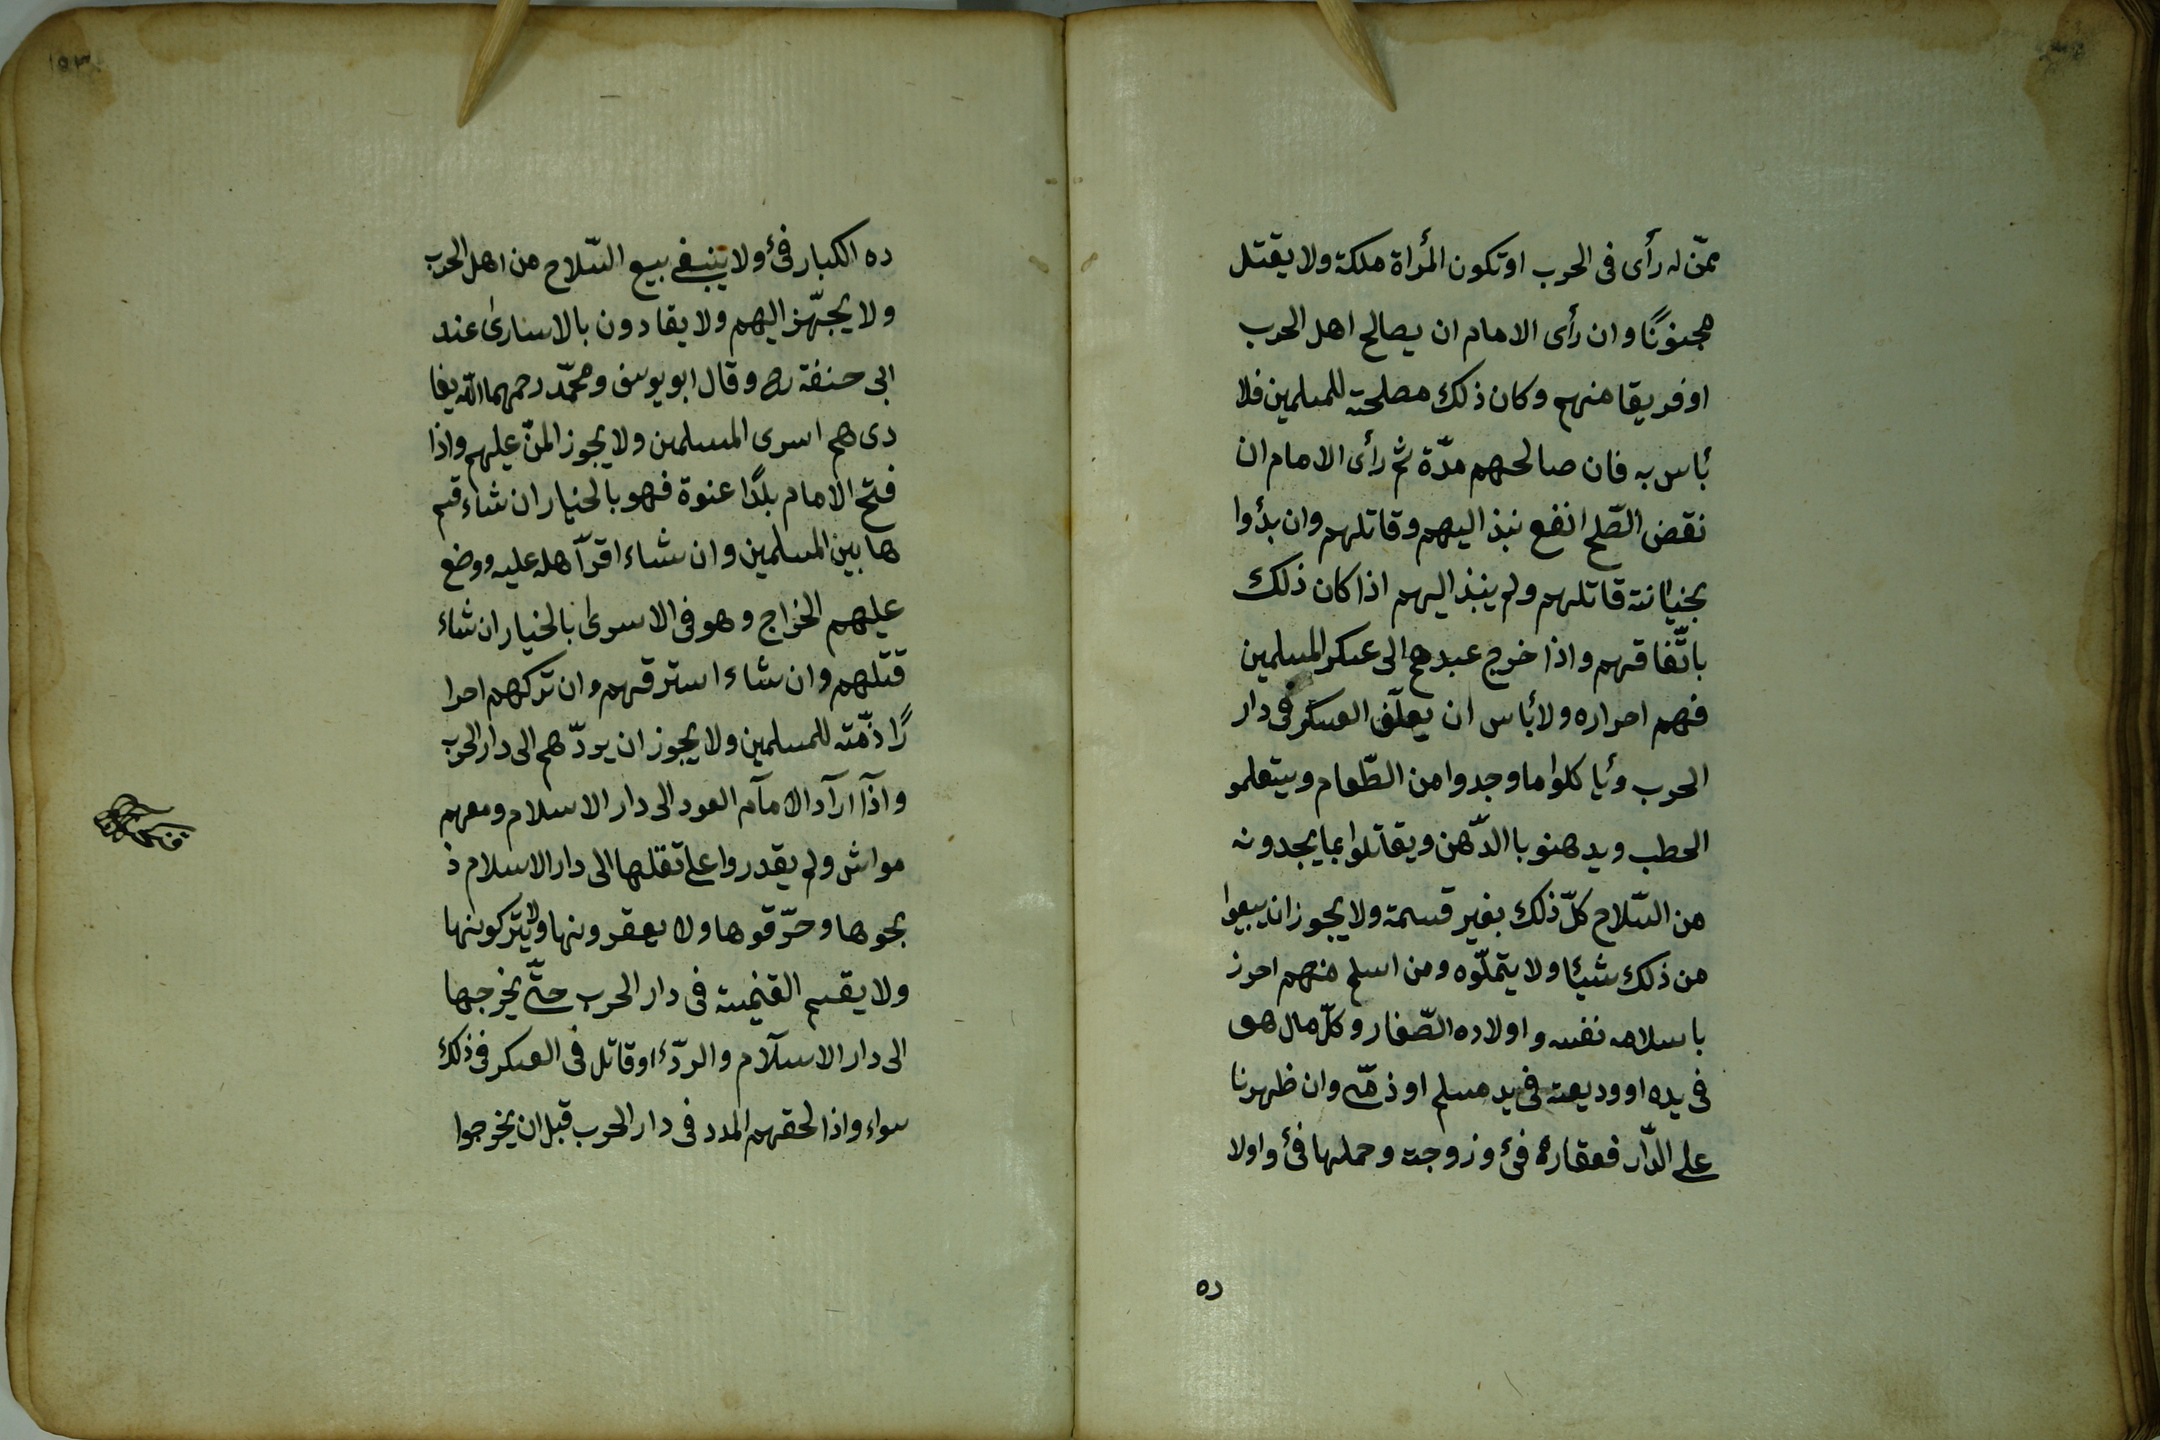 ممّن له رأى فى الحرب او تكون المرأة ملكة ولا يقتل
مجنونًا وان رأى الامام ان يصالح اهل الحرب
او فريقا منهم وكان ذلك مصلحته للمسلمين فلا
بأس به فان صالحهم مدّة ثم رأى الامام ان
نقض الصّلح انفع نبذ اليهم وقاتلهم وان بدأوا
بخيانته قاتلهم ولم ينبذ اليهم اذا كان ذلك
باتّفاقهم واذا خرج عبدهم الى عسكر المسلمين
فهم احراره ولا بأس ان يعلّف العسكر فى دار
الحرب وياكلوا ما وجدوا من الطّعام ويستعلمو
الحطب ويدهنو باالدّهن ويقاتلوا بما يجدونه
من السّلاح كلّ ذلك بغير قسمة ولا يجوز ان يبيعوا
من ذلك شيئا ولا يتملّوه ومن اسلم منهم احرز
باسلامه نفسه واولاده الصّغار وكلّ مال هو
فى يده او وديعته فى يد مسلم او ذمّى وان ظهرنا
على الدّار فعقاره فئ وزوجته وحملها فئ واولا
ده
١٥٣
ده الكبار فئ ولا ينبغى بيع السّلاح من اهل الحرب
ولا يجهّز اليهم ولا يقادون بالاسارى عند
ابى حنفة ره وقال ابو يوسف ومحمّد رحمهما الله يفا
دى هم اسرى المسلمين ولا يجوز المنّ عليهم واذا
فتح الامام بلدًا عنوة فهو بالخيار ان شاء قسم
ها بين المسلمين وان شاء اقرّ اهله عليه ووضع
عليهم الخراج وهو فى الاسرى بالخيار ان شاء
قتلهم وان شاء استرقهم وان تركهم احرا
رًا ذمّته للمسلمين ولا يجوز ان يردّهم الى دار الحرب
واذآ آرآد الامآم العود الى دار الاسلام ومعهم
مواش ولم يقدروا على نقلها الى دار الاسلام ذ
بحوها وحرّقوها ولا يعقرونها ولا يتركونها
ولا يقسم الغنيمته فى دار الحرب حتّى يخرجها
الى دار الاسلآم والردّء او قاتل فى العسكر فى ذلك
سواء واذا لحقهم المدد فى دار الحرب قبل ان يخرجوا